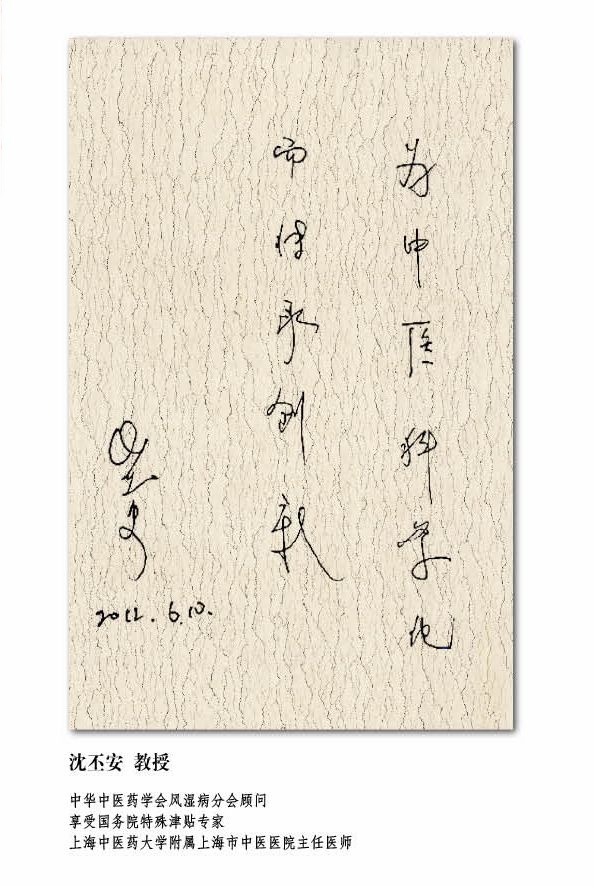 为中医科学化
而传承创新
2012.6.10.
沈丕安 教授
中华中医药学会风湿病分会顾问
享受国务院特殊津贴专家
上海中医药大学附属上海市中医医院主任医师